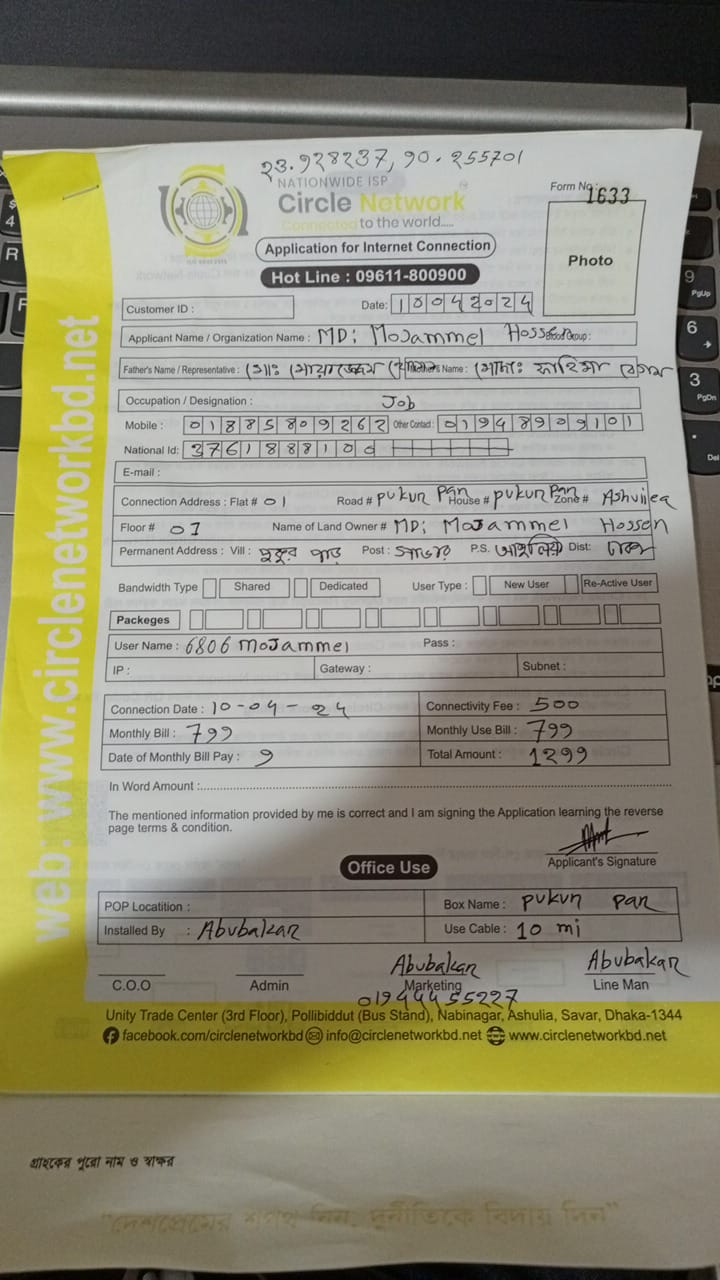 23.928237, 90.255701
NATIONWIDE ISP
Circle Network
Connected to the world.....
Form No: 1633
Photo
Application for Internet Connection
Hot Line : 09611-800900
Customer ID :
Date: 10042024
Applicant Name / Organization Name : MD: MoJammel Hossen Blood Group:
Father's Name / Representative : মোঃ মোয়াজ্জেম Name : মোছাঃ ফাহিমা বেগম
Occupation / Designation : Job
Mobile : 01885809262 Other Contact : 01948909101
National Id: 3761888100
E-mail :
Connection Address : Flat # 01 Road # pukur par House # pukur par Zone # Ashuliea
Floor # 01 Name of Land Owner # MD: MoJammel Hossen
Permanent Address : Vill : পুকুর পাড় Post : সাভার P.S. আশুলিয়া Dist: ঢাকা
Bandwidth Type Shared Dedicated User Type : New User Re-Active User
Packeges
User Name : 6806 moJammel Pass :
IP : Gateway : Subnet :
Connection Date : 10-04-24 Connectivity Fee : 500
Monthly Bill : 799 Monthly Use Bill : 799
Date of Monthly Bill Pay : 9 Total Amount : 1299
In Word Amount :
The mentioned information provided by me is correct and I am signing the Application learning the reverse
page terms & condition.
Applicant's Signature
Office Use
POP Locatition : Box Name : pukur par
Installed By : Abubakar Use Cable : 10 mi
Abubakar Abubakar
C.O.O Admin Marketing Line Man
01944455227
Unity Trade Center (3rd Floor), Pollibiddut (Bus Stand), Nabinagar, Ashulia, Savar, Dhaka-1344
facebook.com/circlenetworkbd info@circlenetworkbd.net www.circlenetworkbd.net
web: www.circlenetworkbd.net
গ্রাহকের পুরো নাম ও স্বাক্ষর
"দেশপ্রেমের শপথ নিন, দুর্নীতিকে বিদায় দিন"